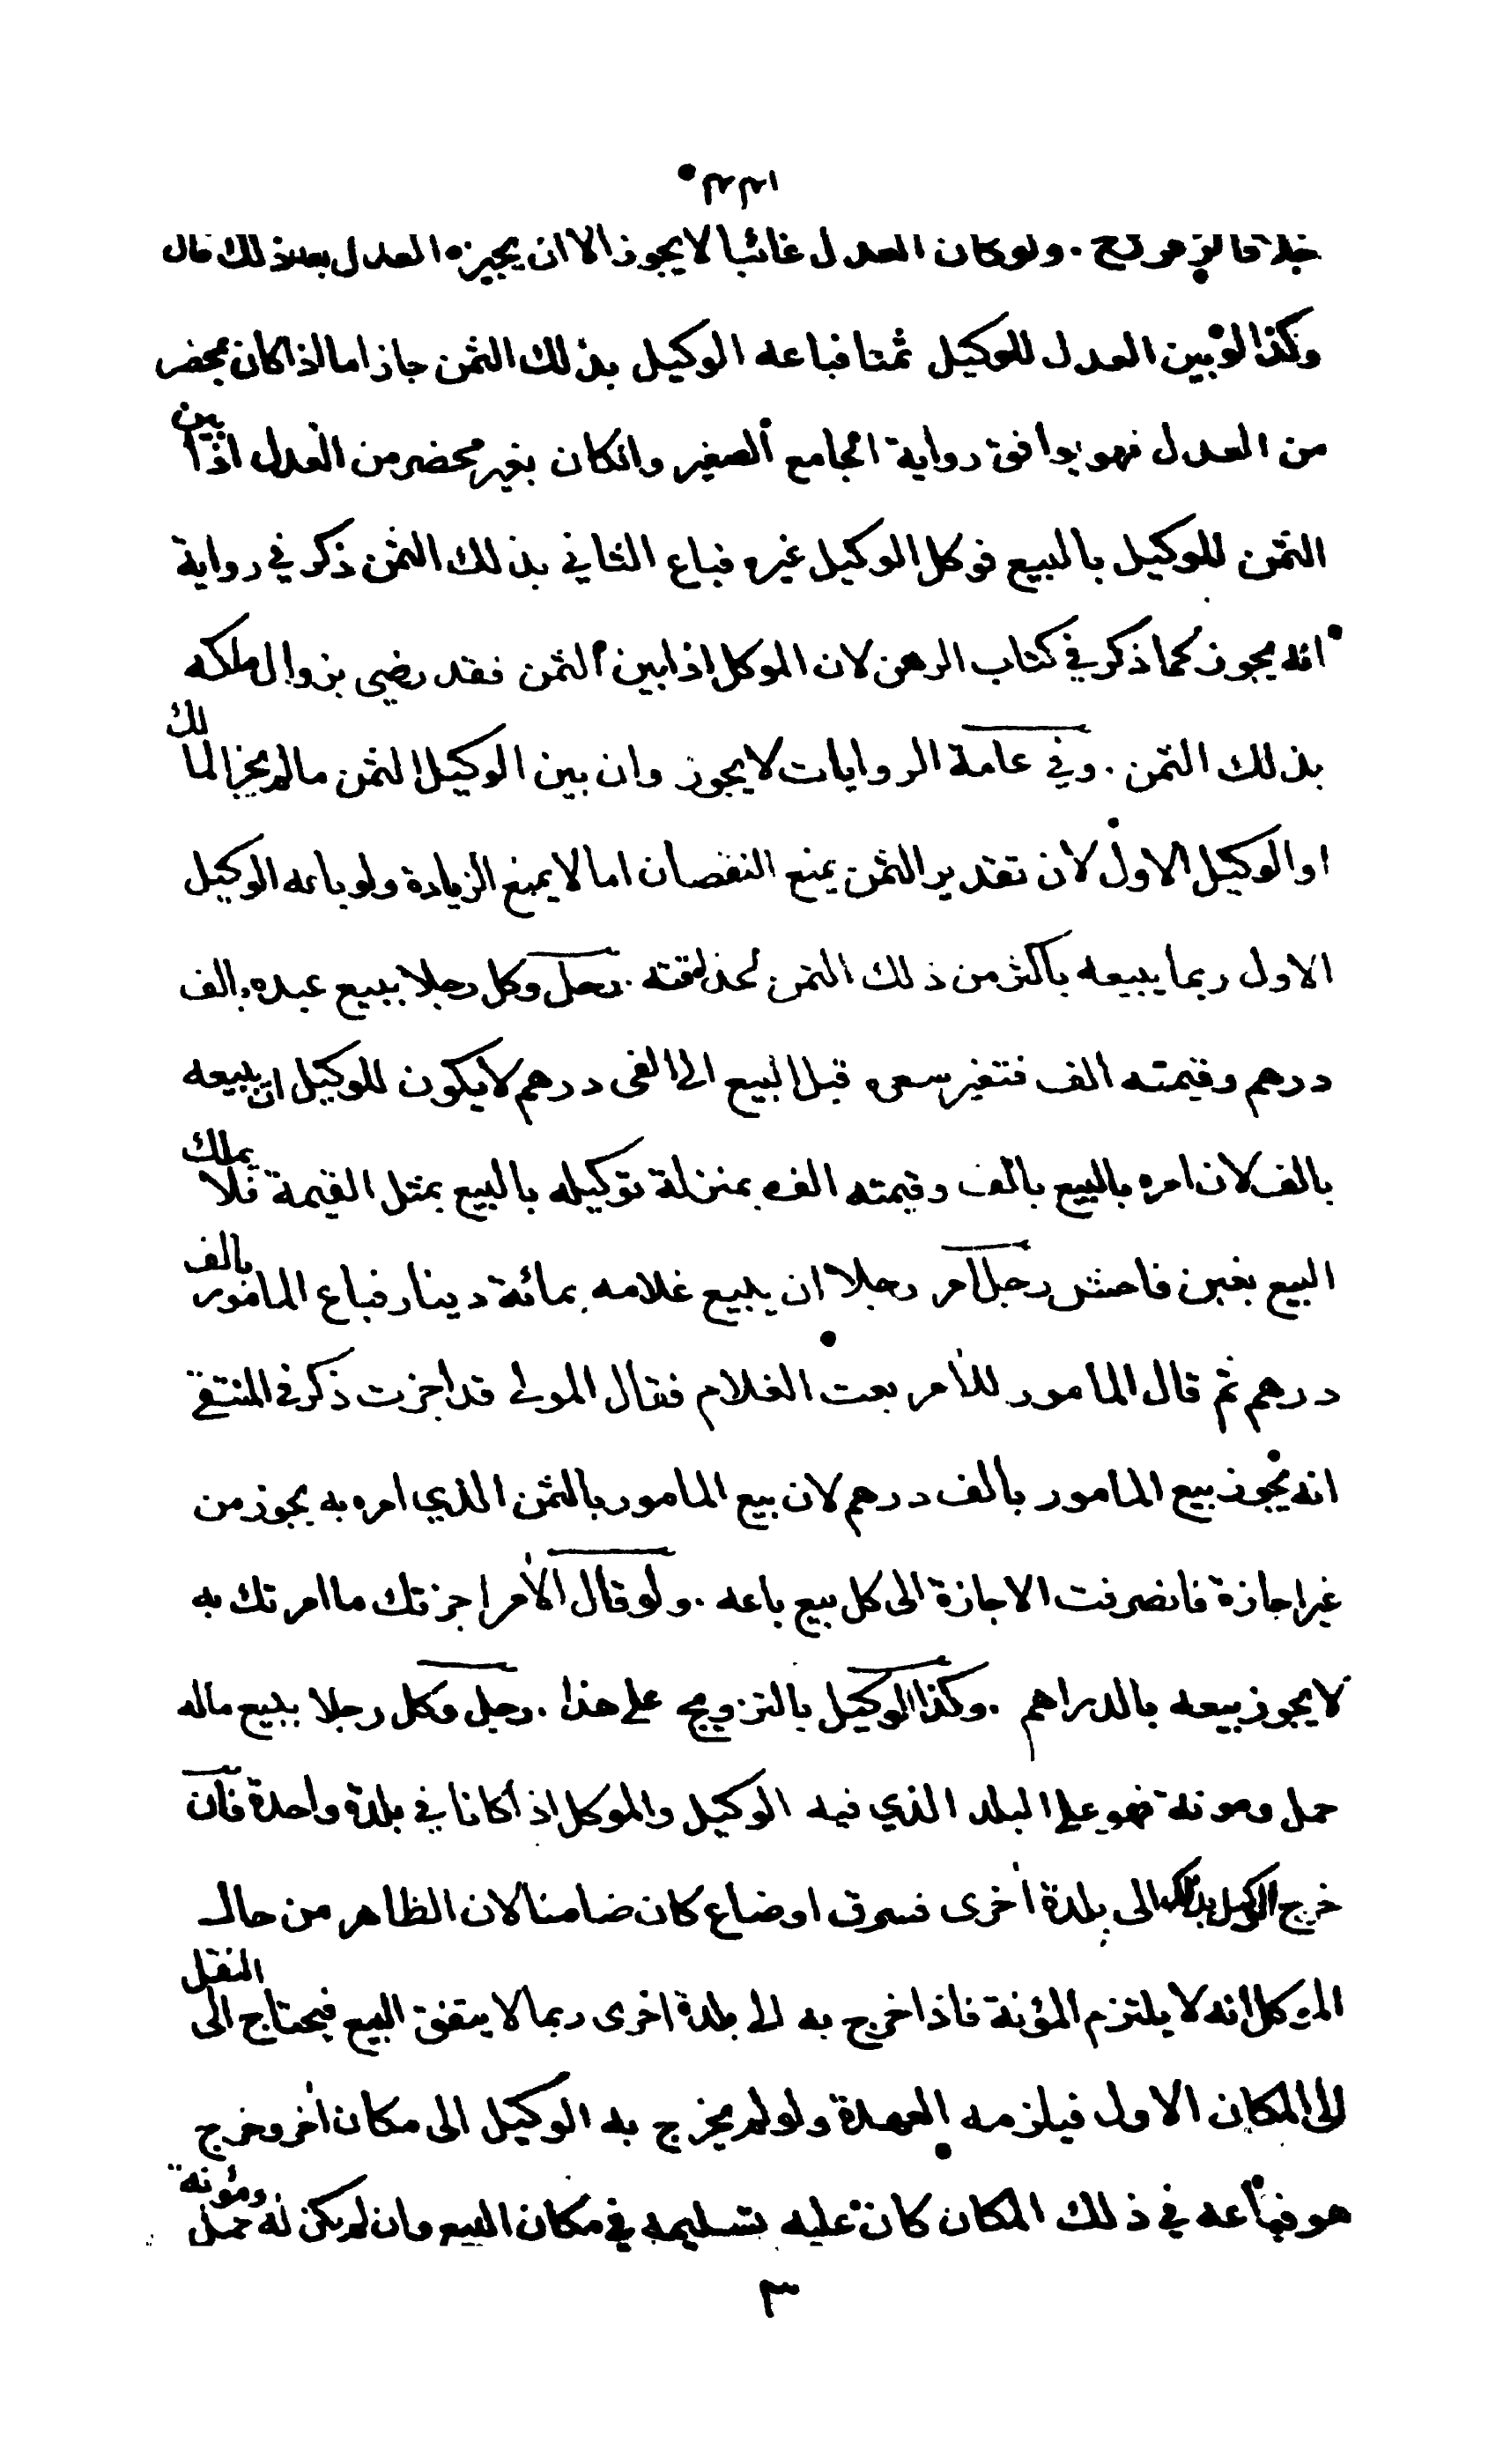 ١٣٣٠
خلافا لزفر رح . ولو كان العدل غائبا لا يجوز الا ان يجيزه العدل بعد ذلك قال
وكذا لو بين العدل للوكيل ثمنا فباعه الوكيل بذلك الثمن جاز اما اذا كان بمحضر
من العدل فهو يوافق رواية الجامع الصغير وانكان بغير محضر من العدل اذا بين
الثمن للوكيل بالبيع فوكل الوكيل غيره فباع الثاني بذلك الثمن ذكر في رواية
انه يجوز كما ذكر في كتاب الرهن لان الموكل اذا بين الثمن فقد رضي بزوال ملكه
بذلك الثمن . وفي عامة الروايات لا يجوز وان بين الوكيل الثمن مالم يجز المالك
او الوكيل الاول لان تقدير الثمن يمنع النقصان اما لا يمنع الزيادة ولو باعه الوكيل
الاول ربما يبيعه باكثر من ذلك الثمن لحذاقته . رجل وكل رجلا ببيع عبده بالف
درهم وقيمته الف فتغير سعره قبل البيع الى الفى درهم لا يكون للوكيل ان يبيعه
بالف لان امره بالبيع بالف وقيمته الف بمنزلة توكيله بالبيع بمثل القيمة فلا يملك
البيع بغبن فاحش رجل امر رجلا ان يبيع غلامه بمائة دينار فباع المامور بالف
درهم ثم قال المامور للأمر بعت الغلام فقال المولى قد اجزت ذكر في المنتقى
انه يجوز بيع المامور بالف درهم لان بيع المامور بالثمن الذي امره به يجوز من
غير اجازة فانصرفت الاجازة الى كل بيع باعه . ولو قال الأمر اجزتك ما امرتك به
لا يجوز بيعه بالدراهم . وكذا الوكيل بالتزويج على هذا . رجل وكل رجلا ببيع ماله
حمل ومونة فهو على البلد الذي فيه الوكيل والموكل اذا كانا في بلدة واحدة فان
خرج الوكيل بذلك الى بلدة اخرى فسرق او ضاع كان ضامنا لان الظاهر من حال
الموكل انه لا يلتزم المؤنة فاذا خرج به الى بلدة اخرى ربما لا يتفق البيع فيحتاج الى النقل
الى المكان الاول فيلزمه العهدة ولو لم يخرج به الوكيل الى مكان أخر وخرج
هو فباعه في ذلك المكان كان عليه تسليمه في مكان البيع وان لم يكن له حمل ومؤنة
٣